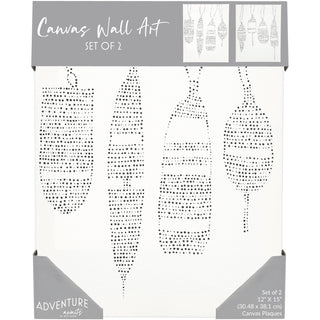 Canvas Wall Art
SET OF 2
ADVENTURE
awaits
Set of 2
12" X 15"
(30.48 x 38.1 cm)
Canvas Plaques